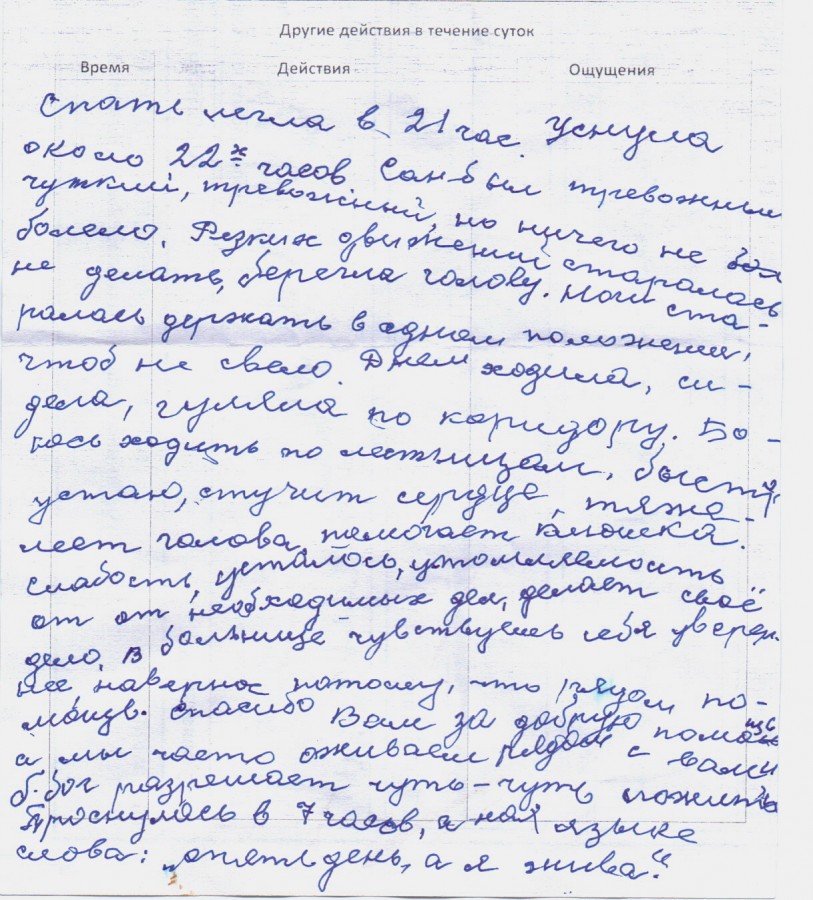 Другие действия в течение суток
Время Действия Ощущения
Спать легла в 21 час. Уснула
около 22х часов. Сон был тревожным
чуткий, тревожный, но ничего не
болело. Резких движений старалась
не делать, берегла голову. Ноги ста-
ралась держать в одном положении,
чтоб не свело. Днем ходила, си-
дела, гуляла по коридору. Бо-
юсь ходить по лестницам, быстро
устаю, стучит сердце, тяже-
леет голова, помогает
слабость, усталось, утомляемость
от от необходимых дел, делает своё
дело. В больнице чувствуешь себя уверен-
нее, наверное потому, что рядом по-
мощь. Спасибо Вам за добрую помощь
а мы часто оживаем рядом с вами
бог разрешает чуть-чуть пожить
Проснулась в 7 часов, а на языке
слова: „опять день, а я жива".